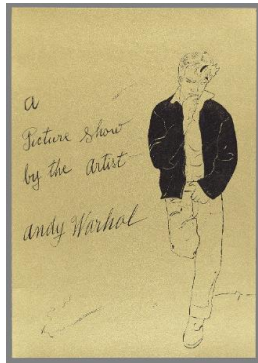 a
Picture Show
by the Artist
andy Warhol